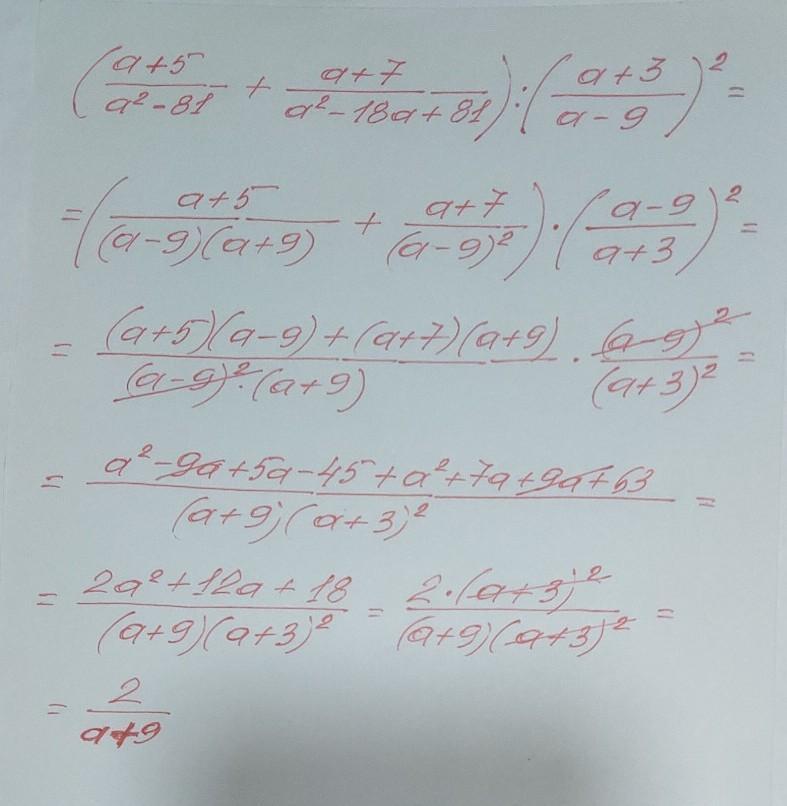 ( (a+5)/(a²-81) + (a+7)/(a²-18a+81) ) : ( (a+3)/(a-9) )² =
= ( (a+5)/((a-9)(a+9)) + (a+7)/((a-9)²) ) · ( (a-9)/(a+3) )² =
= ((a+5)(a-9)+(a+7)(a+9))/((a-9)²·(a+9)) · (a-9)²/(a+3)² =
= (a²-9a+5a-45+a²+7a+9a+63)/((a+9)(a+3)²) =
= (2a²+12a+18)/((a+9)(a+3)²) = (2·(a+3)²)/((a+9)(a+3)²) =
= 2/(a+9)